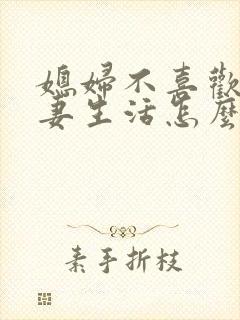 媳婦不喜歡
妻生活怎麼
素手折枝